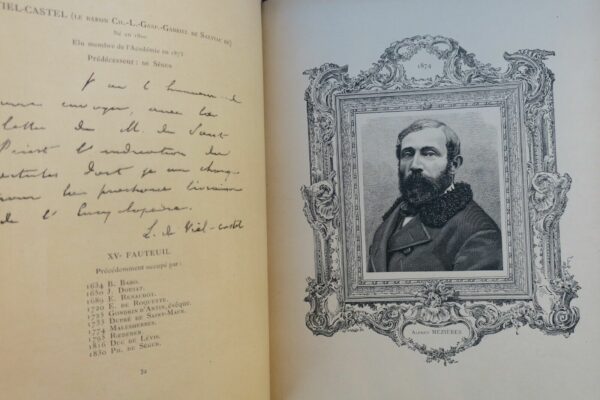 VIEL-CASTEL (LE BARON CH.-L.-GASP.-GABRIEL DE SALVIAC DE)
Né en 1800
Elu membre de l'Académie en 1873
Prédécesseur: DE SÉGUR
J'ai l'honneur de
envoyer, avec la
lettre de M. de Saint
Priest l'indication des
dont je me charge
pour la prochaine livraison
de l'Encyclopédie.
L. de Viel-castel
XVe FAUTEUIL
Précédemment occupé par:
1634 B. BARO.
1650 J. DOUJAT.
1689 E. RENAUDOT.
1720 E. DE ROQUETTE.
1725 GONDRIN D'ANTIN, évêque.
1733 DUPRÉ DE SAINT-MAUR.
1774 MALESHERBES.
1795 RŒDERER.
1816 DUC DE LÉVIS.
1830 PH. DE SÉGUR.
1874
ALFRED MÉZIÈRES